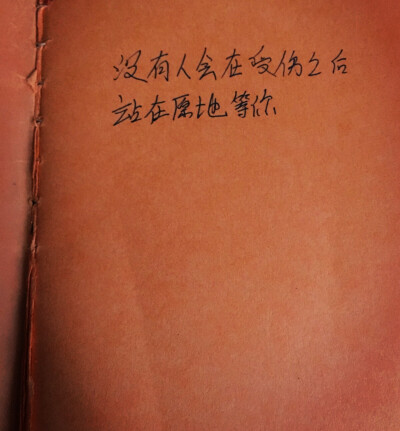 没有人会在受伤之后
站在原地等你